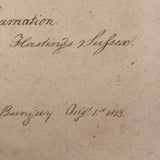 amation.
Hastings & Sussex.
Bungay Augt. 1st 1815.